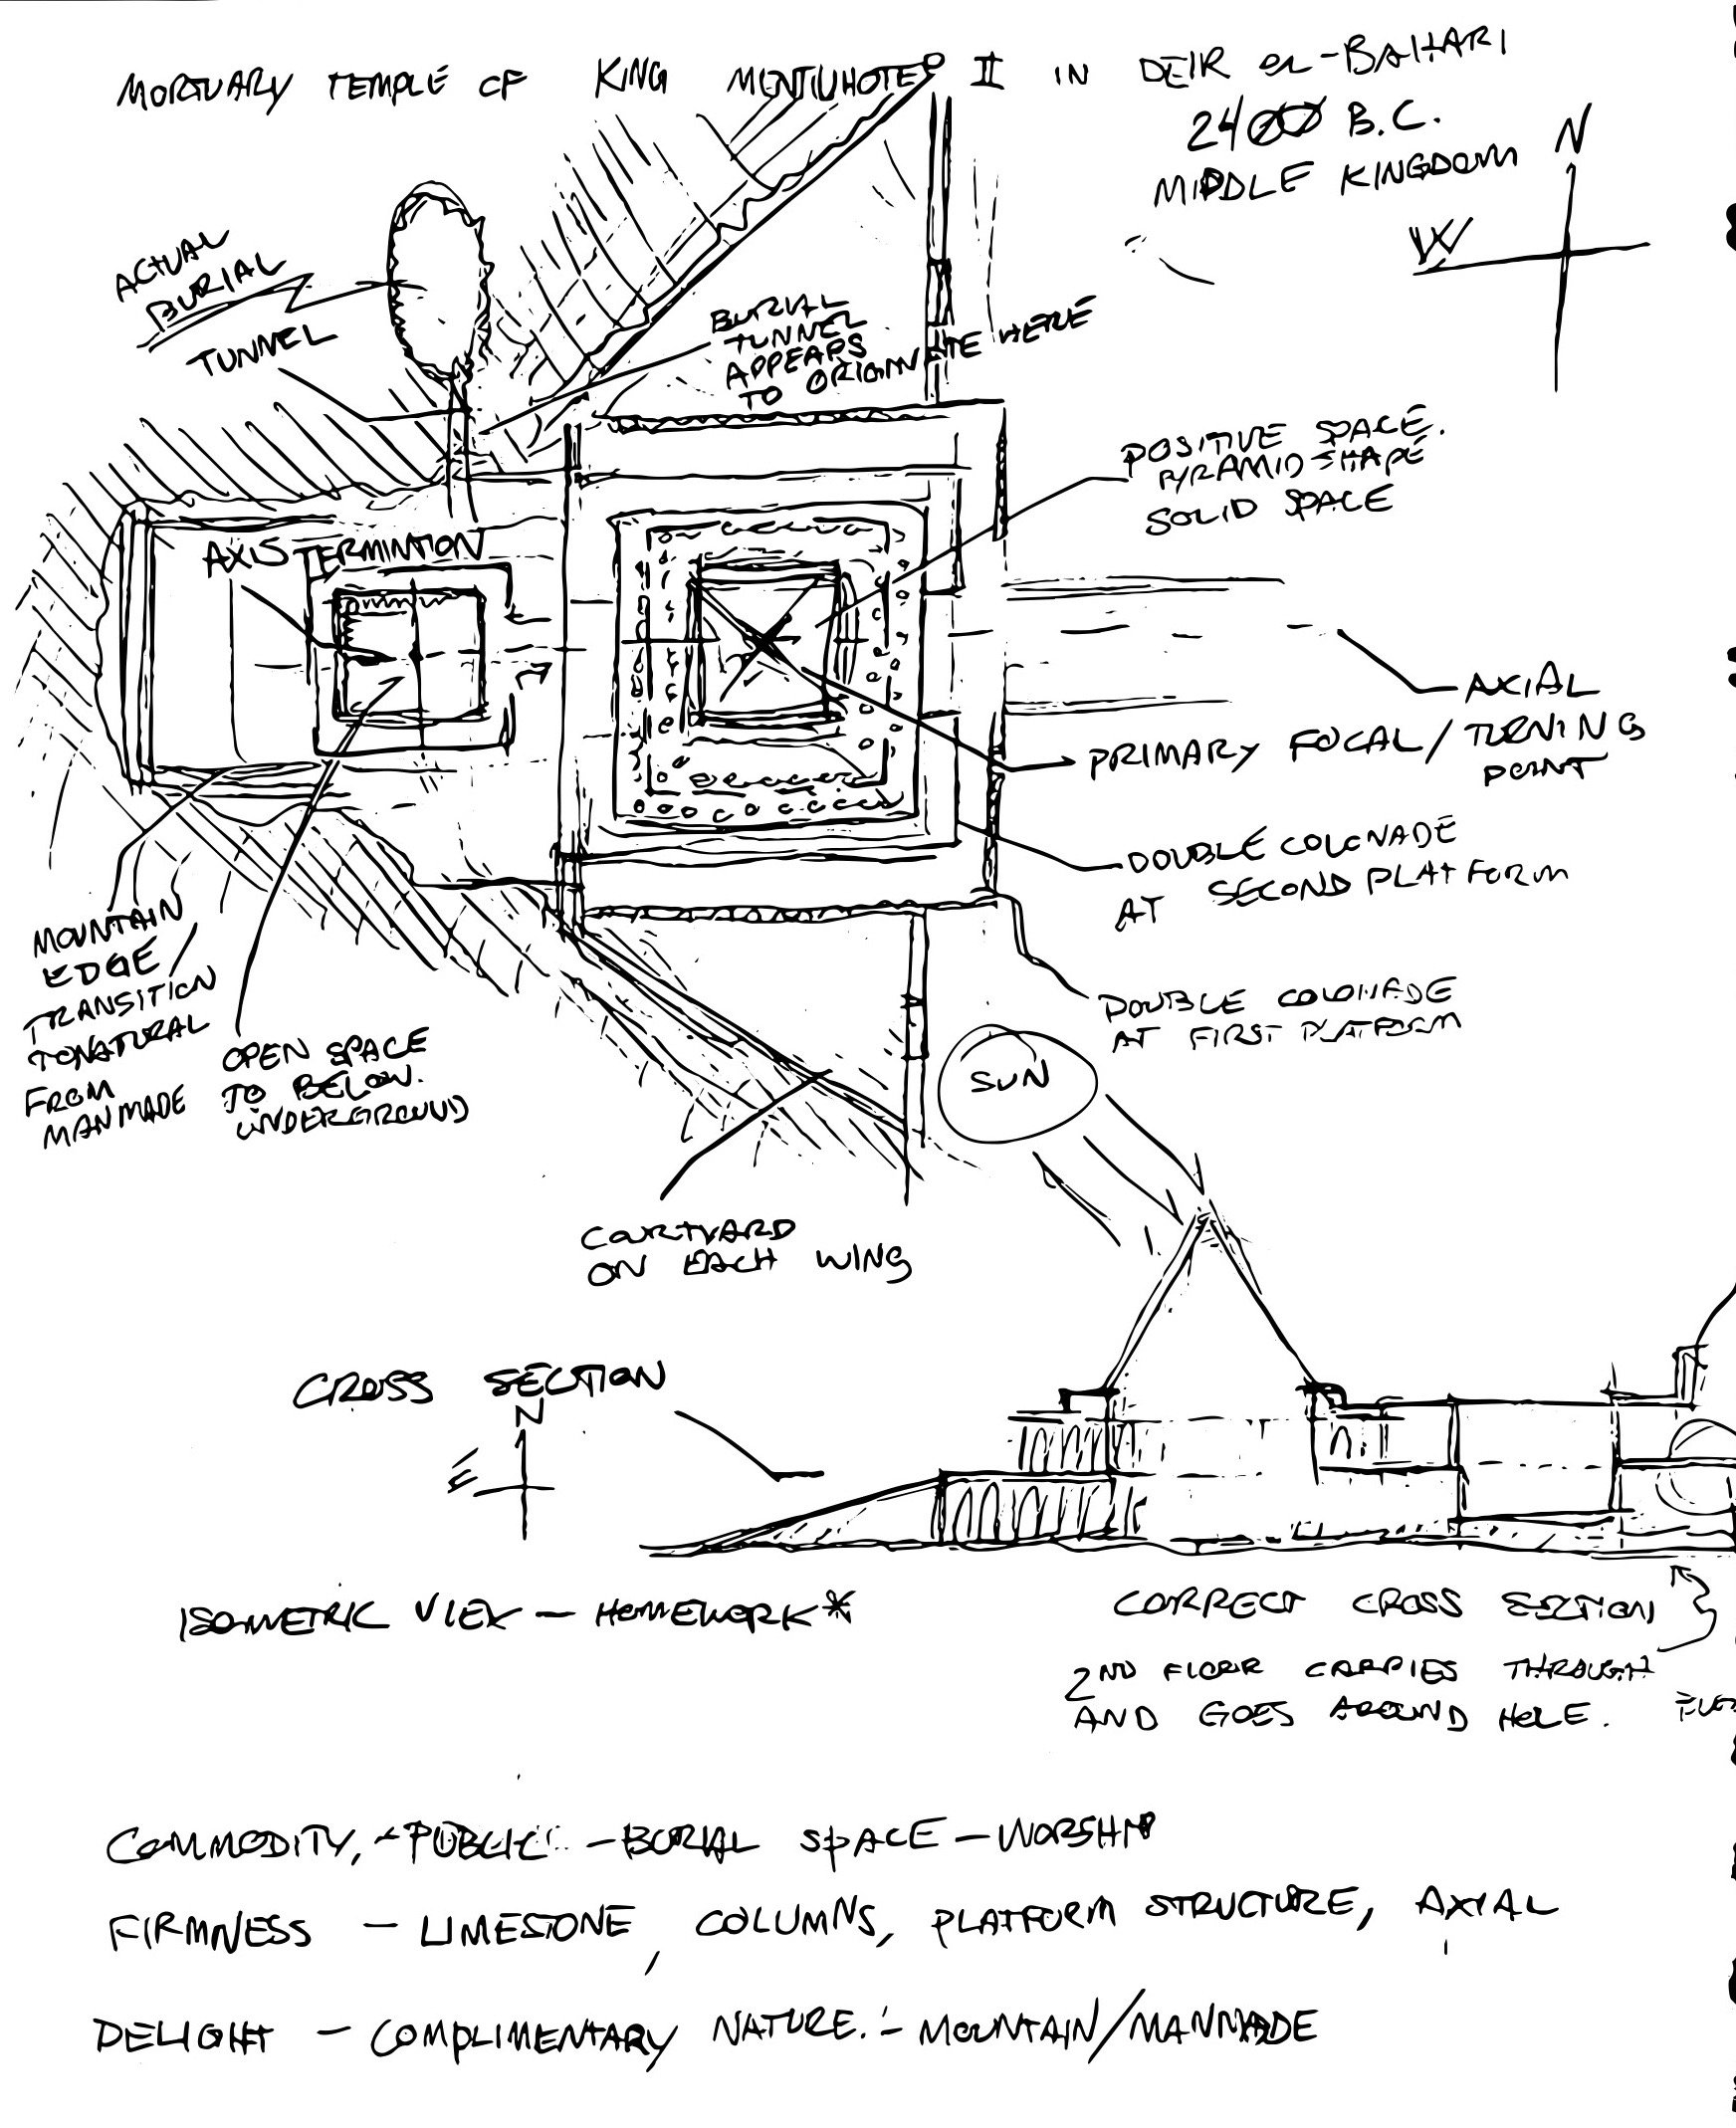 MORTUARY TEMPLE OF KING MENTUHOTEP II IN DEIR EL-BAHARI
2400 B.C.
MIDDLE KINGDOM
N
W
ACTUAL
BURIAL
TUNNEL
BURIAL
TUNNEL
APPEARS
TO ORIGINATE HERE
POSITIVE SPACE.
PYRAMID SHAPE
SOLID SPACE
AXIS TERMINTION
AXIAL
PRIMARY FOCAL/TURNING
POINT
DOUBLE COLONADE
AT SECOND PLATFORM
DOUBLE COLONADE
AT FIRST PLATFORM
MOUNTAIN
EDGE/
TRANSITION
TO NATURAL
FROM
MANMADE
OPEN SPACE
TO BELOW.
UNDERGROUND
SUN
COURTYARD
ON EACH WING
CROSS SECTION
N
E
ISOMETRIC VIEW - HOMEWORK*
CORRECT CROSS SECTION
2ND FLOOR CARRIES THROUGH
AND GOES AROUND HOLE.
COMMODITY, - PUBLIC - BURIAL SPACE - WORSHIP
FIRMNESS - LIMESTONE, COLUMNS, PLATFORM STRUCTURE, AXIAL
DELIGHT - COMPLIMENTARY NATURE. - MOUNTAIN/MANMADE